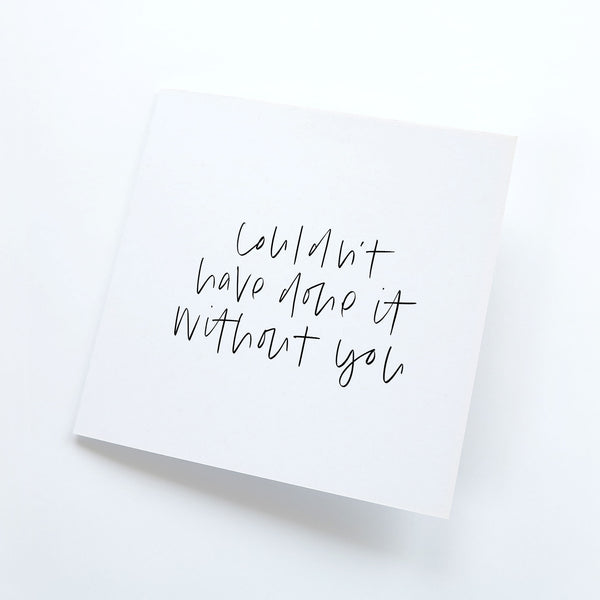 couldn't
have done it
without you